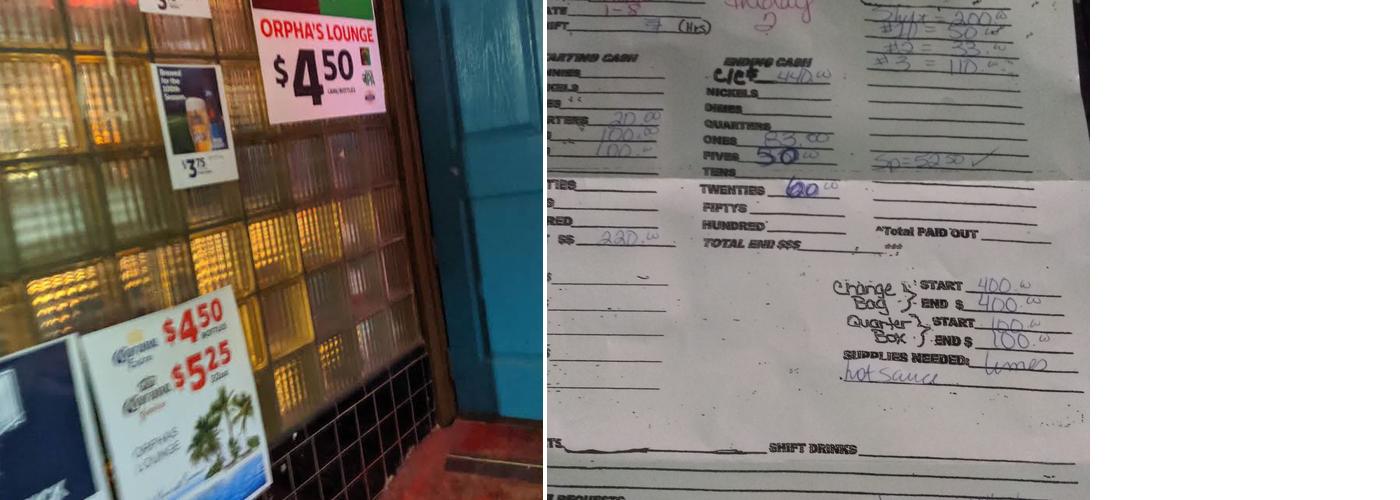 ORPHA'S LOUNGE
$4 50
CANS/BOTTLES
Brewed
for the
100th
Season
$3 75
Corona
$4 50
BOTTLES
Corona
$5 25
ORPHAS
LOUNGE
Friday
1-8
7 (Hrs)
2
= 200.00
#1 = 50.00
#2 = 33.00
#3 = 110.00
ARTING CASH
ENDING CASH
C/C$ 440.00
NICKELS
DIMES
RTERS 20.00
QUARTERS
100.00
ONES 83.00
100.00
FIVES 50.00
Sp = 52.50 ✓
TENS
TIES
TWENTIES 60.00
FIFTYS
RED
HUNDRED
*Total PAID OUT
***
$$ 220.00
TOTAL END $$$
Change Bag START 400.00
END $ 400.00
Quarter Box START 100.00
END $ 100.00
SUPPLIES NEEDED: limes
hot sauce
TS
SHIFT DRINKS
REQUESTS